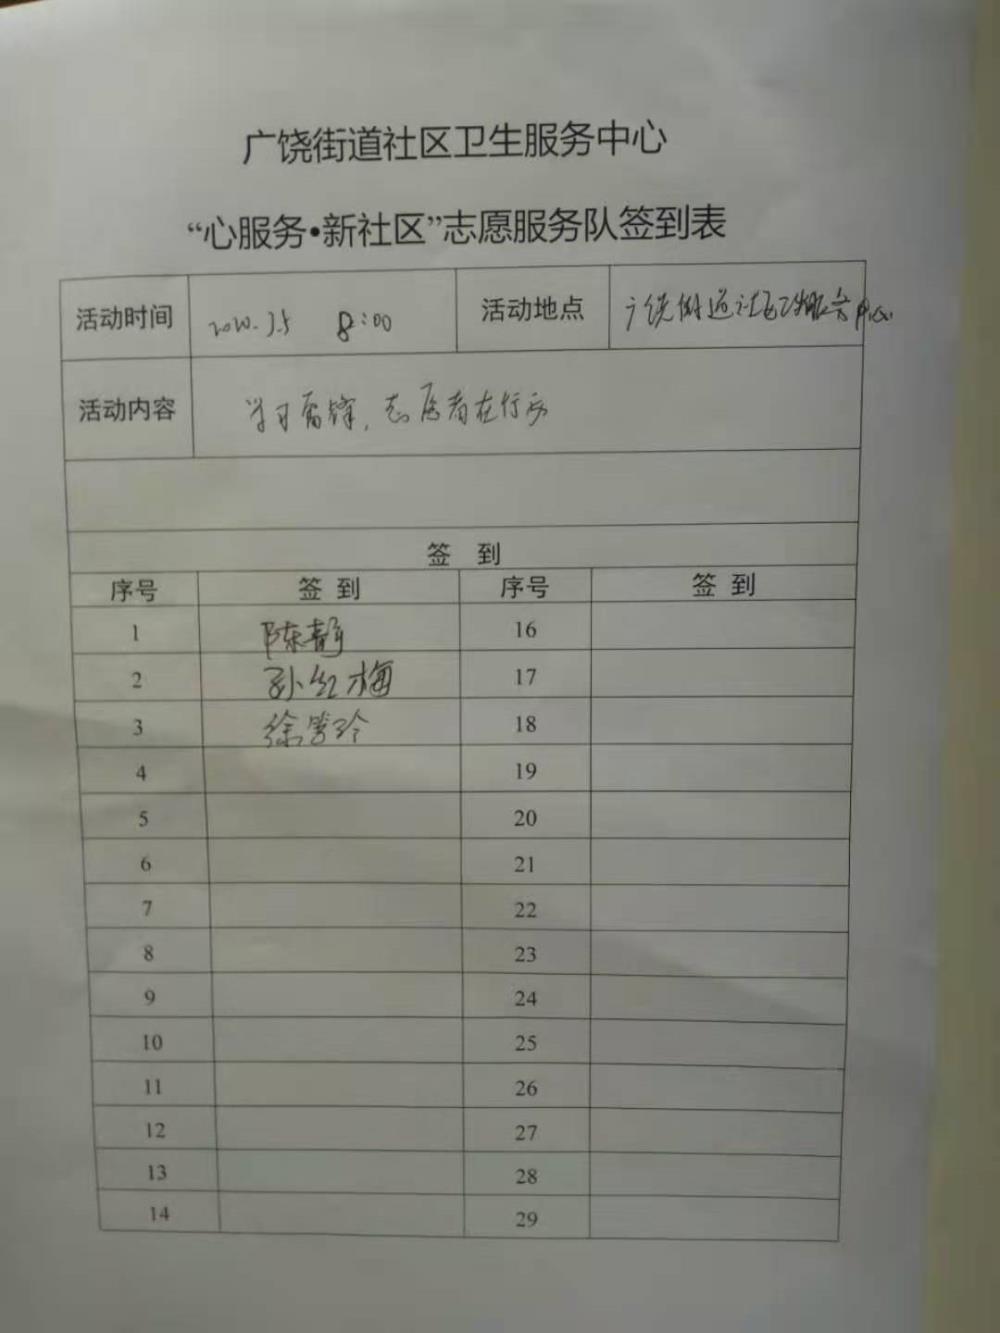 广饶街道社区卫生服务中心
“心服务•新社区”志愿服务队签到表
活动时间 2020.3.5 8:00 活动地点 广饶街道社区卫生服务中心
活动内容 学习雷锋,志愿者在行动
签 到
序号 签 到 序号 签 到
1 陈静 16
2 孙红梅 17
3 徐 玲 18
4 19
5 20
6 21
7 22
8 23
9 24
10 25
11 26
12 27
13 28
14 29